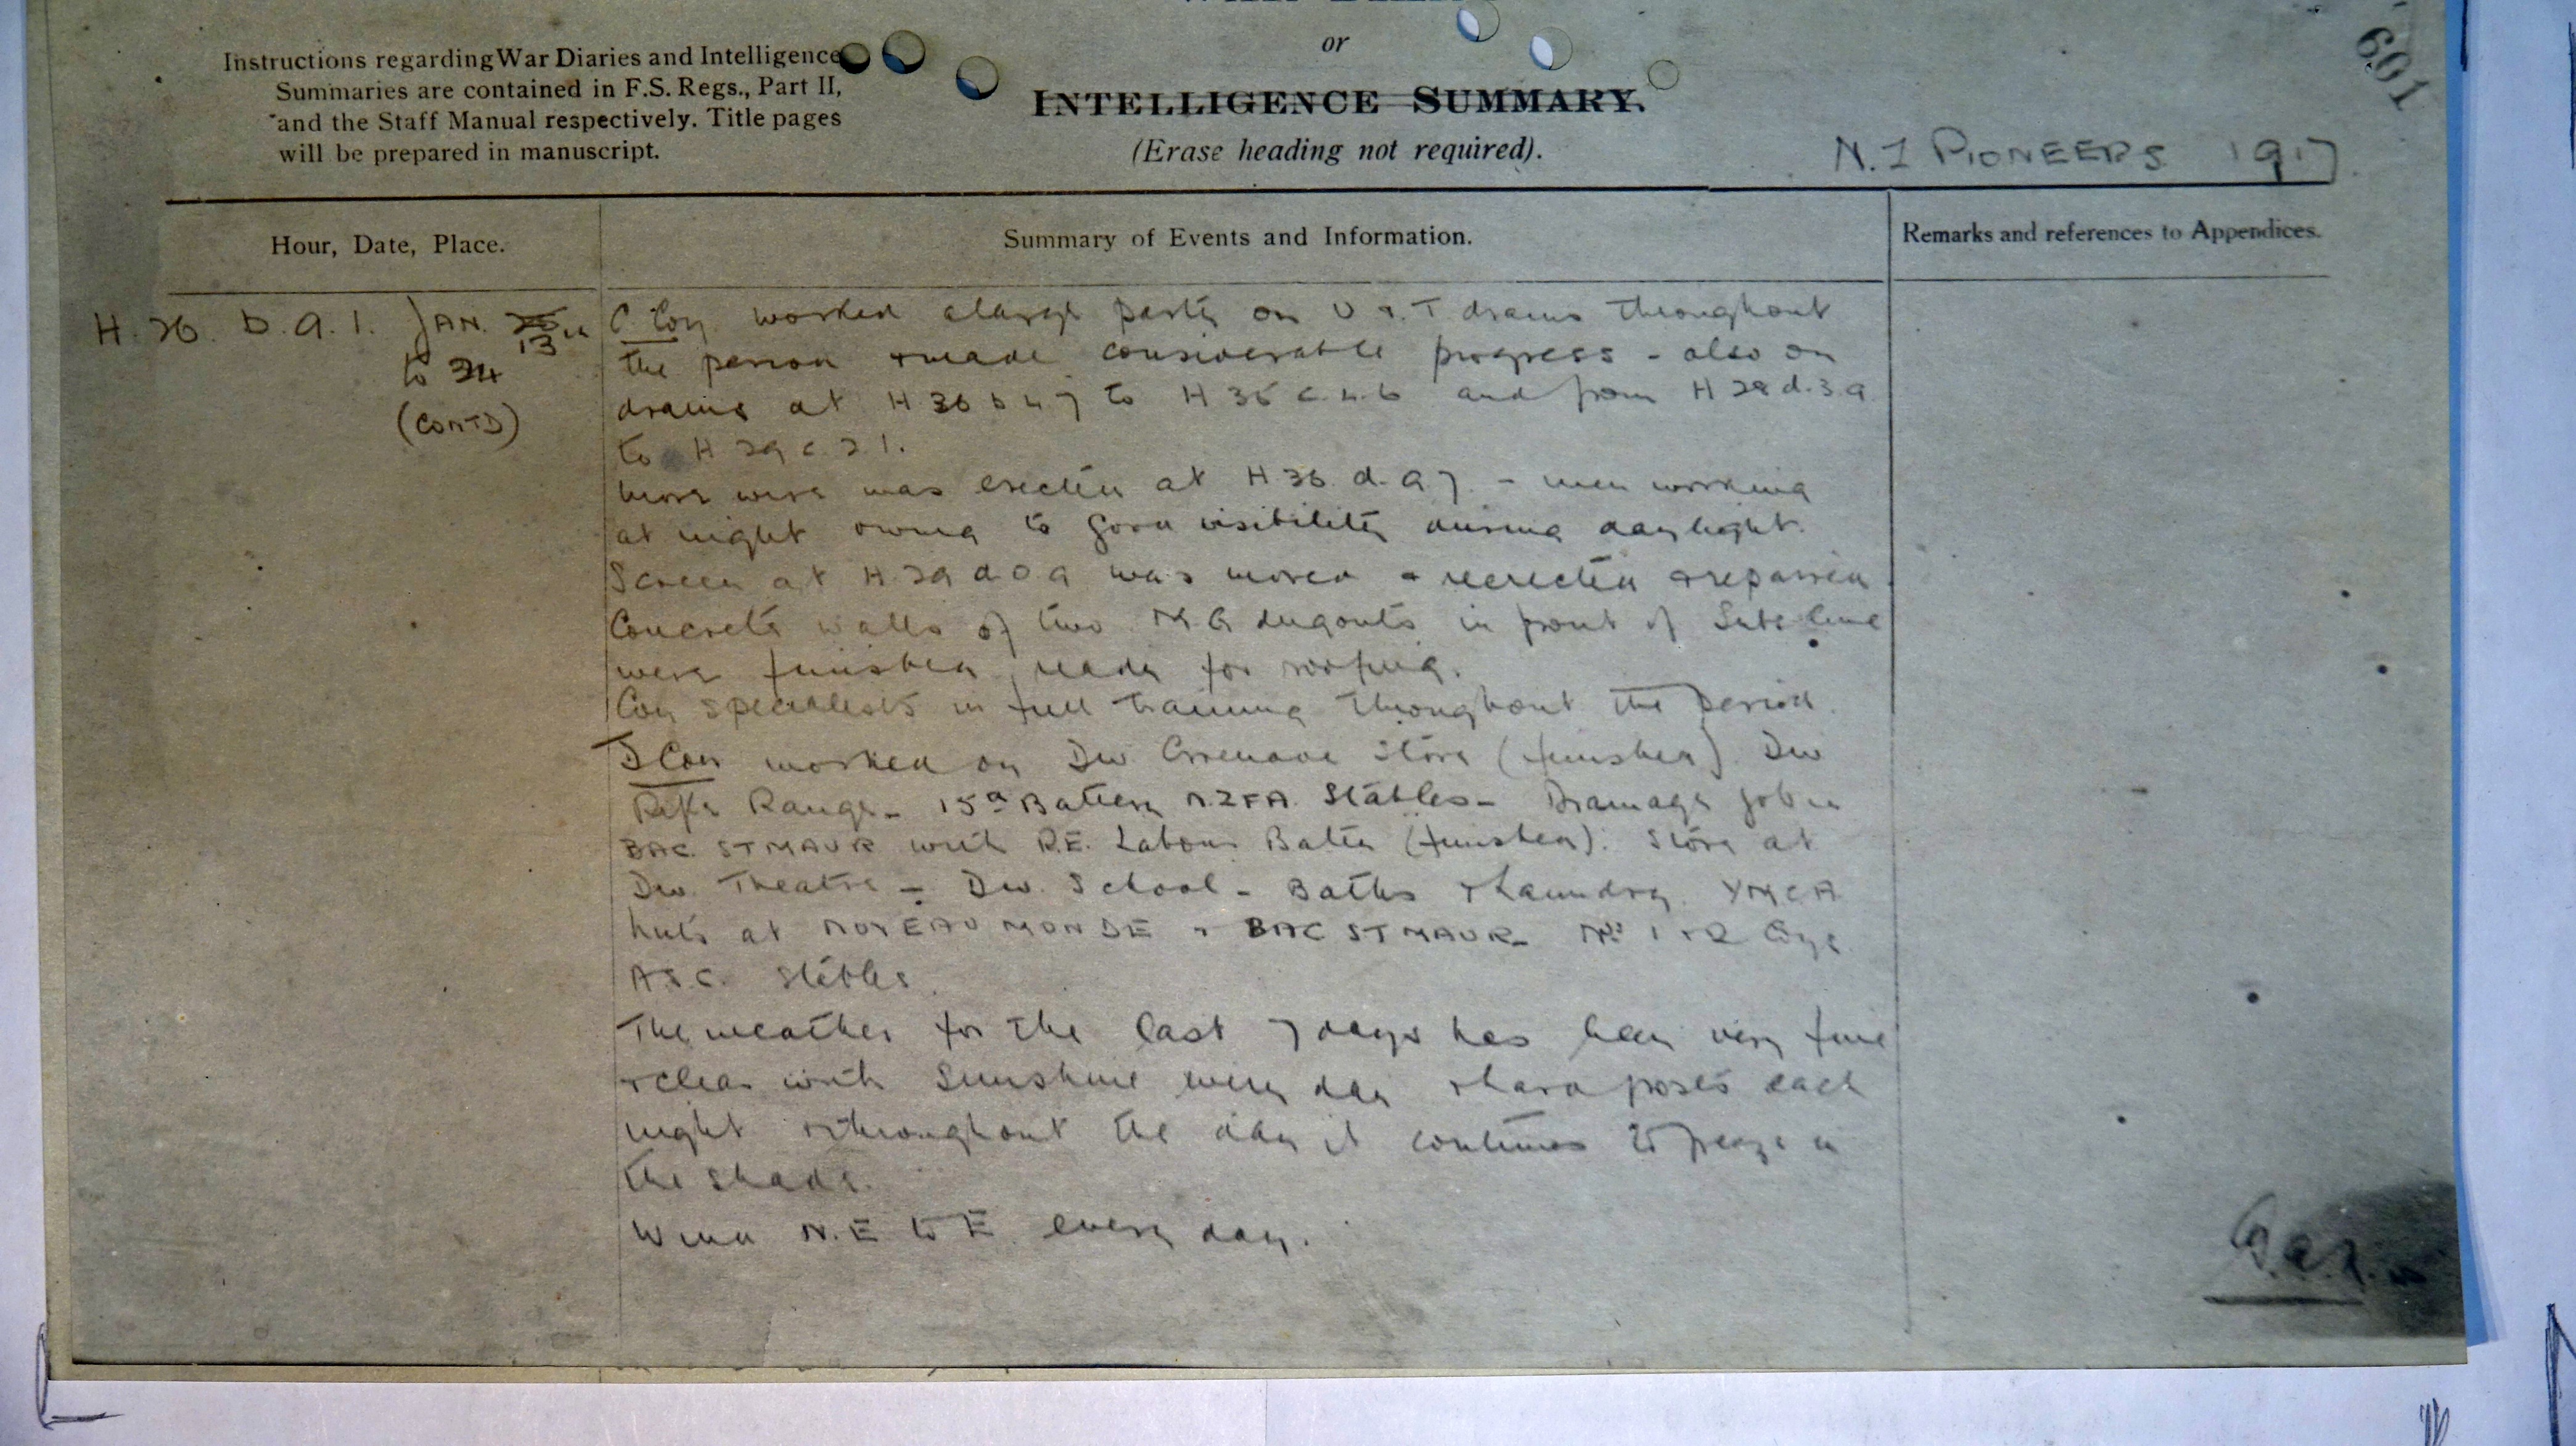 or
Instructions regarding War Diaries and Intelligence
Summaries are contained in F.S. Regs., Part II,
and the Staff Manual respectively. Title pages
will be prepared in manuscript.
INTELLIGENCE SUMMARY.
(Erase heading not required).
601
N.Z PIONEERS 1917
Hour, Date, Place.
Summary of Events and Information.
Remarks and references to Appendices.
H. 26 b. 9. 1. JAN. 13th
to 24
(CONTD)
C. Coy. worked a large party on U & T drains throughout
the period & made considerable progress - also on
drains at H 36 b 4 7 to H 36 c. 4. 6 and from H 28 d. 3. 9
to H 29 c. 2 1.
More wire was erected at H 36. d. 9 7. - men working
at night owing to good visibility during daylight.
Screen at H 29 d 0 9 was moved & reerected & repaired
Concrete walls of two M G dugouts in front of Subs line
were finished, ready for roofing.
Coy specialists in full training throughout the period.
D Coy worked on Div. Grenade Store (finished) Div
Rifle Range - 15th Battery N.Z.F.A. Stables - Drainage job in
BAC. ST MAUR with R.E. Labour Battn (finished). Store at
Div. Theatre - Div. School - Baths & Laundry. YMCA
huts at NOVEAU MONDE & BAC ST MAUR - Nos 1 & 2 Coys
A.S.C. Stables.
The weather for the last 7 days has been very fine
& clear with sunshine every day & hard frosts each
night & throughout the day it continues to freeze in
the shade.
Wind N.E to E. every day.